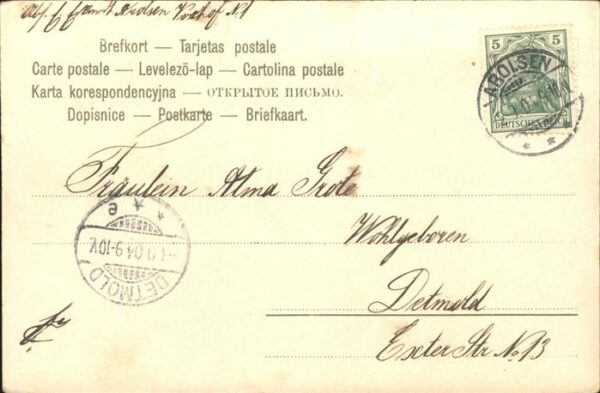 Brefkort — Tarjetas postale
Carte postale — Levelező-lap — Cartolina postale
Karta korespondencyjna — ОТКРЫТОЕ ПИСЬМО.
Dopisnice — Postkarte — Briefkaart.
5 5
LABOLSEN
DEUTSCHES
Fräulein Alma Grote
Wohlgeboren
Detmold
Exter Str. No 13
DETMOLD
-3.9.04.9-10V.
* * e